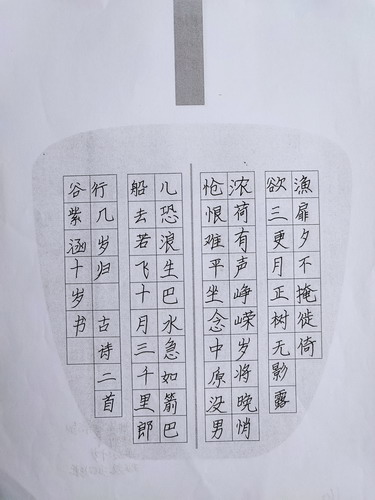 漁扉夕不掩徙倚
欲三更月正树无影露
浓荷有声峥嵘岁将晚悄
怆恨难平坐念中原没男
儿恐浪生巴水急如箭巴
船去若飞十月三千里郎
行几岁归 古诗二首
谷紫涵十岁书